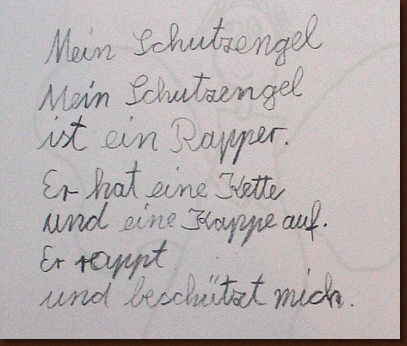 Mein Schutzengel
Mein Schutzengel
ist ein Rapper.
Er hat eine Kette
und eine Kappe auf.
Er rappt
und beschützt mich.